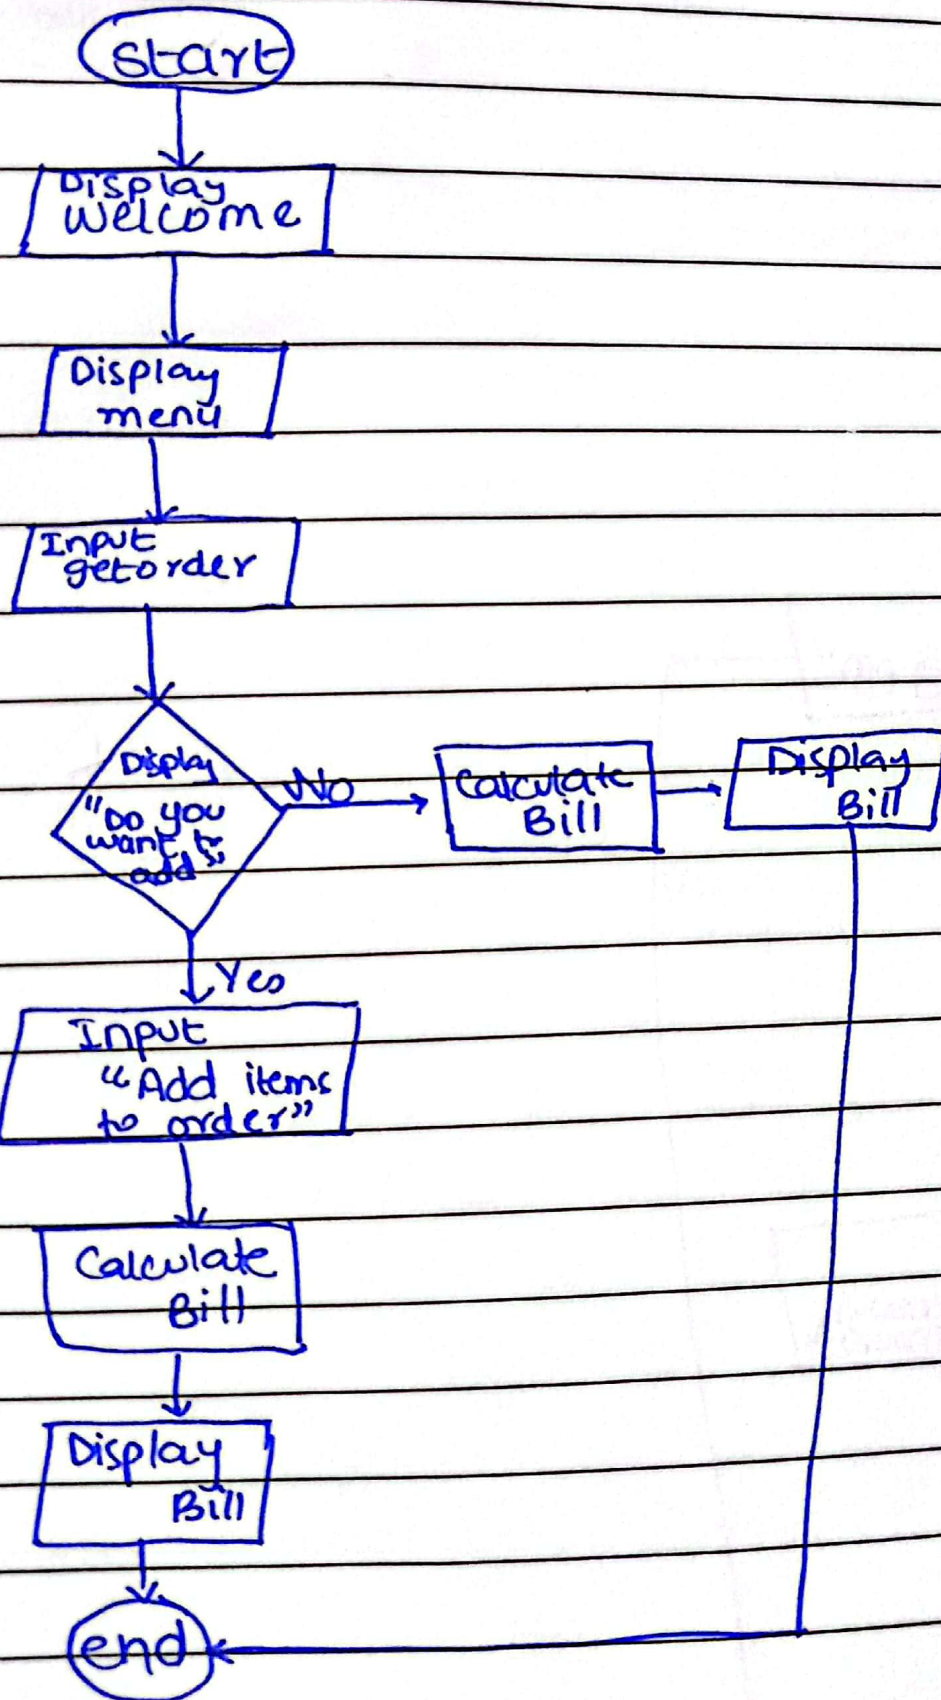 Start
Display
Welcome
Display
menu
Input
getorder
Display
"Do you
want to
add"
No
Calculate
Bill
Display
Bill
Yes
Input
"Add items
to order"
Calculate
Bill
Display
Bill
end